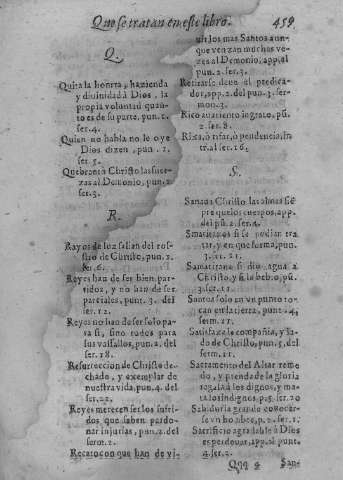 Que se tratan en este libro. 459
Q.
Quita la honra, hazienda
y diuinidad à Dios, la
propia voluntad quan-
to es de su parte, pun. 1.
ser. 4.
Quien no habla no le oye
Dios dizen, pun. 1.
ser. 5.
Quebrantò Christo las fuer-
zas al Demonio, pun. 2.
ser. 3.
R.
Rayos de luz salian del ros-
tro de Christo, pun. 2.
ser. 6.
Reyes han de ser bien par-
tidos, y no han de ser
parciales, punt. 3. del
ser. 12.
Reyes no han de ser solo pa-
ra si, sino todos para
sus vassallos, pun. 2. del
ser. 18.
Resurreccion de Christo de-
chado, y exemplar de
nuestra vida, pun. 4. del
ser. 22.
Reyes merecen ser los sufri-
dos que saben perdo-
nar injurias, pun. 2. del
serm. 2.
Recato con que han de vi-
uir los mas Santos aun-
que venzan muchas ve-
zes al Demonio, app. al
pun. 2. ser. 3.
Retirarse deue el predica-
dor, app. 2. del pun. 3. ser-
mon. 3.
Rico auariento ingrato, pũ.
2. ser. 8.
Rixa, ò rifar, ò pendencia, in
tra. al ser. 16.
S.
Sanaua Christo las almas siẽ
pre que los cuerpos, app.
del pũ. 2. ser. 4.
Samaritanos si se podian tra
tar, y en que forma, pun.
3. ser. 21.
Samaritana si dio agua à
Christo, y si la bebio, pũ.
3. ser. 21.
Santos solo en vn punto to-
can en la tierra, punt. 4.
serm. 21.
Satisface la compañia, y la-
do de Christo, pun. 5. del
serm. 21.
Sacramento del Altar reme
do, y prenda de la gloria
regala à los dignos, y ma-
ta los indignos, p. 5. ser. 20
Sabiduria grande conocer-
se vn hombre, p. 2. ser. 1.
Sacrificio agradable à Dios
es perdonar, app. al punt.
4. ser. 2.
Qqq 4 San-